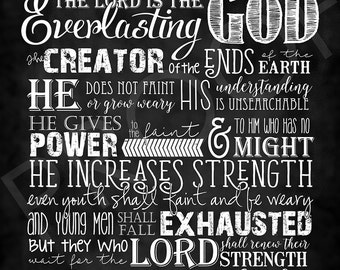 & THE LORD IS THE
Everlasting GOD
the CREATOR of the ENDS of the EARTH
HE DOES NOT FAINT or GROW WEARY HIS understanding IS UNSEARCHABLE
HE GIVES POWER to the faint & TO HIM WHO HAS NO MIGHT
HE INCREASES STRENGTH
even youth shall faint and be weary
and young men SHALL FALL EXHAUSTED
But they who wait for the LORD shall renew their STRENGTH